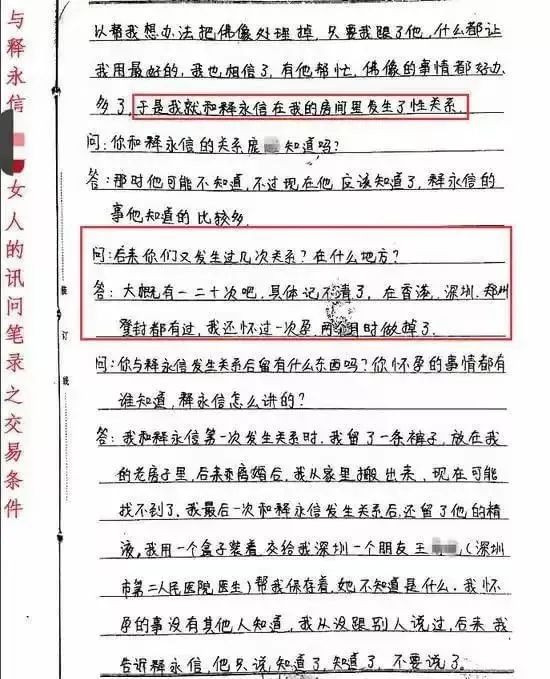 与释永信
女人的讯问笔录之交易条件
装订线
以帮我想办法把佛像处理掉,只要我跟了他,什么都让
我用最好的,我也相信了,有他帮忙,佛像的事情都好办
多了,于是我就和释永信在我的房间里发生了性关系.
问:你和释永信的关系庞 知道吗?
答:那时他可能不知道,不过现在他应该知道了,释永信的
事他知道的比较多.
问:后来你们又发生过几次关系?在什么地方?
答:大概有一二十次吧,具体记不清了,在香港,深圳,郑州
登封都有过,我还怀过一次孕,两个月时做掉了.
问:你与释永信发生关系后留有什么东西吗?你怀孕的事情都有
谁知道,释永信怎么讲的?
答:我和释永信第一次发生关系时,我留了一条裤子,放在我
的老房子里,后来离婚后,我从家里搬出来,现在可能
找不到了,我最后一次和释永信发生关系后,还留了他的精
液,我用一个盒子装着,交给我深圳一个朋友王 (深圳
市第二人民医院医生)帮我保存着,她不知道是什么.我怀
孕的事没有其他人知道,我从没跟别人说过,后来我
告诉释永信,他只说,知道了,知道了,不要说了.